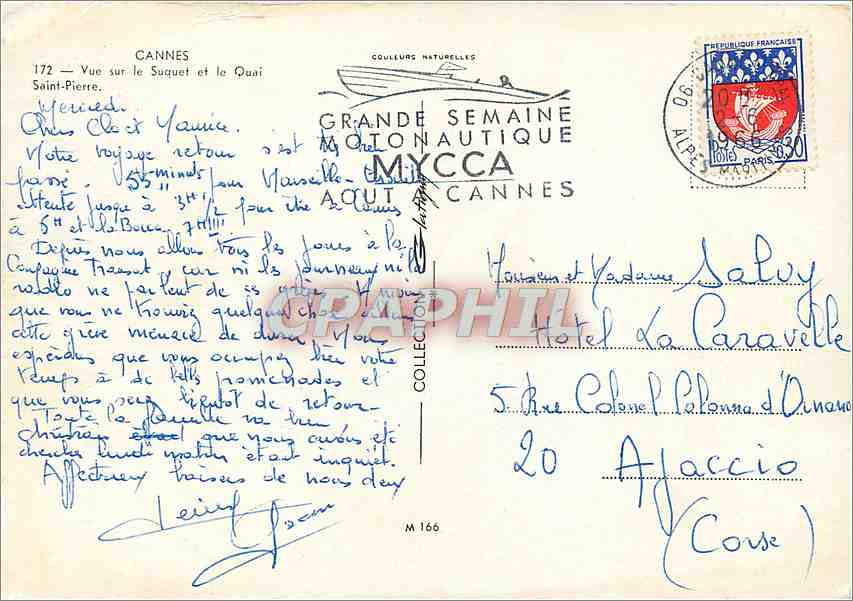 CANNES
172 — Vue sur le Suquet et le Quai
Saint-Pierre.
COULEURS NATURELLES
GRANDE SEMAINE
MOTONAUTIQUE
MYCCA
AOUT CANNES
REPUBLIQUE FRANÇAISE
POSTES PARIS 0,30
06
1966
ALPES MARIT
Mercredi
Chers Clo et Maurice.
Notre voyage retour s'est très bien
passé. 55 minutes pour Marseille
attente jusqu'à 3H 1/2 pour être à Cannes
à 5H et la Bocca 7H!!!!
Depuis nous allons tous les jours à la
Compagnie Transat, car ni les journaux ni la
radio ne parlent de
que vous ne trouviez quelque chose
cette grève menace de durer. Nous
espérons que vous occupez bien votre
temps à de belles promenades et
que vous serez bientôt de retour.
Toute la famille va bien
Christian que nous avons été
chercher lundi matin était inquiet.
Affectueux baisers de nous deux
COLLECTION
M 166
Monsieur et Madame Salvy
Hôtel La Caravelle
5 Rue Colonel Colonna d'Ornano
20 Ajaccio
(Corse)
CPARPHIL.COM